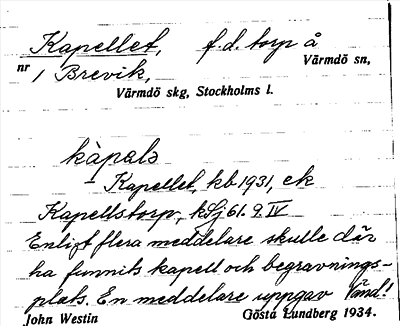 Kapellet, f.d. torp å
nr 1 Brevik, Värmdö sn,
Värmdö skg, Stockholms l.
kàpalə
- Kapellet, kb 1931, ek
Kapellstorp, kSj 61. 9. IV
Enligt flera meddelare skulle där
ha funnits kapell och begravnings-
plats. En meddelare uppgav Vänd!
John Westin Gösta Lundberg 1934.